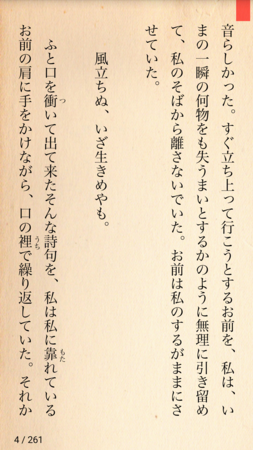 音らしかった。すぐ立ち上って行こうとするお前を、私は、い
まの一瞬の何物をも失うまいとするかのように無理に引き留め
て、私のそばから離さないでいた。お前は私のするがままにさ
せていた。
風立ちぬ、いざ生きめやも。
ふと口を衝いて出て来たそんな詩句を、私は私に靠れている
お前の肩に手をかけながら、口の裡で繰り返していた。それか
4 / 261